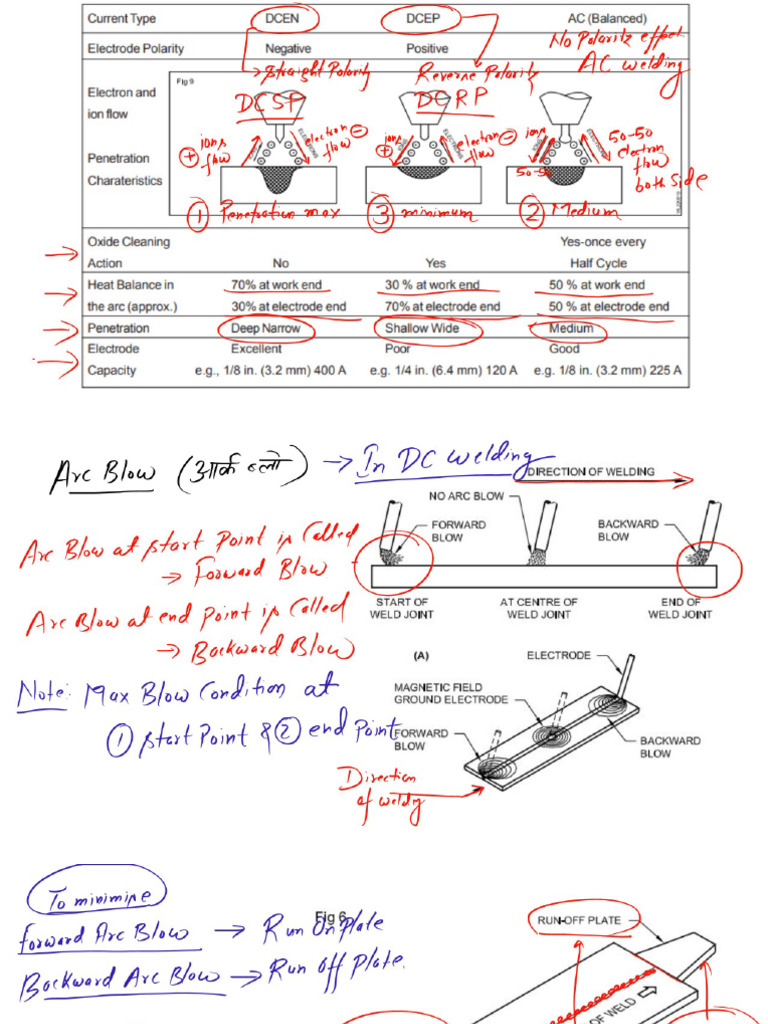 Current Type DCEN DCEP AC (Balanced)
Electrode Polarity Negative Positive No Polarity effect
→ Straight Polarity Reverse Polarity AC welding
Electron and
ion flow
Fig 9
DCSP DCRP
ions flow + electron flow − ions + electron flow − ions 50-50 50-50 electron flow both side
IONS ELECTRONS
Penetration
Charateristics
① Penetration max ③ minimum ② Medium
Oxide Cleaning Yes-once every
Action No Yes Half Cycle
Heat Balance in 70% at work end 30 % at work end 50 % at work end
the arc (approx.) 30% at electrode end 70% at electrode end 50 % at electrode end
Penetration Deep Narrow Shallow Wide Medium
Electrode Excellent Poor Good
Capacity e.g., 1/8 in. (3.2 mm) 400 A e.g. 1/4 in. (6.4 mm) 120 A e.g. 1/8 in. (3.2 mm) 225 A
Arc Blow (आर्क ब्लो) → In DC welding
DIRECTION OF WELDING
NO ARC BLOW
FORWARD BLOW
BACKWARD BLOW
Arc Blow at start Point is Called
→ Forward Blow
START OF WELD JOINT
AT CENTRE OF WELD JOINT
END OF WELD JOINT
Arc Blow at end point is Called
→ Backward Blow
(A)
ELECTRODE
Note: Max Blow Condition at
① start Point & ② end Point
MAGNETIC FIELD
GROUND ELECTRODE
FORWARD
BLOW
BACKWARD
BLOW
Direction
of weldig
To minimine
Fig 6
RUN-OFF PLATE
Forward Arc Blow → Run On Plate
Backward Arc Blow → Run Off Plate.
OF WELD